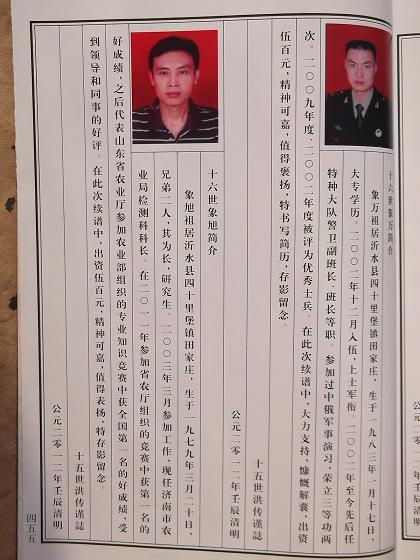 十六世象万简介
象万祖居沂水县四十里堡镇田家庄，生于一九八三年一月十七日，
大专学历。二〇〇二年十二月入伍，上士军衔。二〇〇二年至今先后任
特种大队警卫副班长、班长等职。参加过中俄军事演习，荣立三等功两
次。二〇〇九年度、二〇〇二年度被评为优秀士兵。在此次续谱中，大力支持，慷慨解囊，出资
伍百元，精神可嘉，值得褒扬，特书写简历，存影留念。
十五世洪传谨志
公元二零一二年壬辰清明
十六世象旭简介
象旭祖居沂水县四十里堡镇田家庄，生于一九七九年三月二十日，
兄弟二人，其为长，研究生。二〇〇三年三月参加工作，现任济南市农
业局检测科科长。在二〇一一年参加省农业厅组织的竞赛中获第一名的
好成绩，之后代表山东省农业厅参加农业部组织的专业知识竞赛中获全国第一名的好成绩，受
到领导和同事的好评。在此次续谱中，出资伍百元，精神可嘉，值得表扬，特存影留念。
十五世洪传谨志
公元二零一二年壬辰清明
四五五